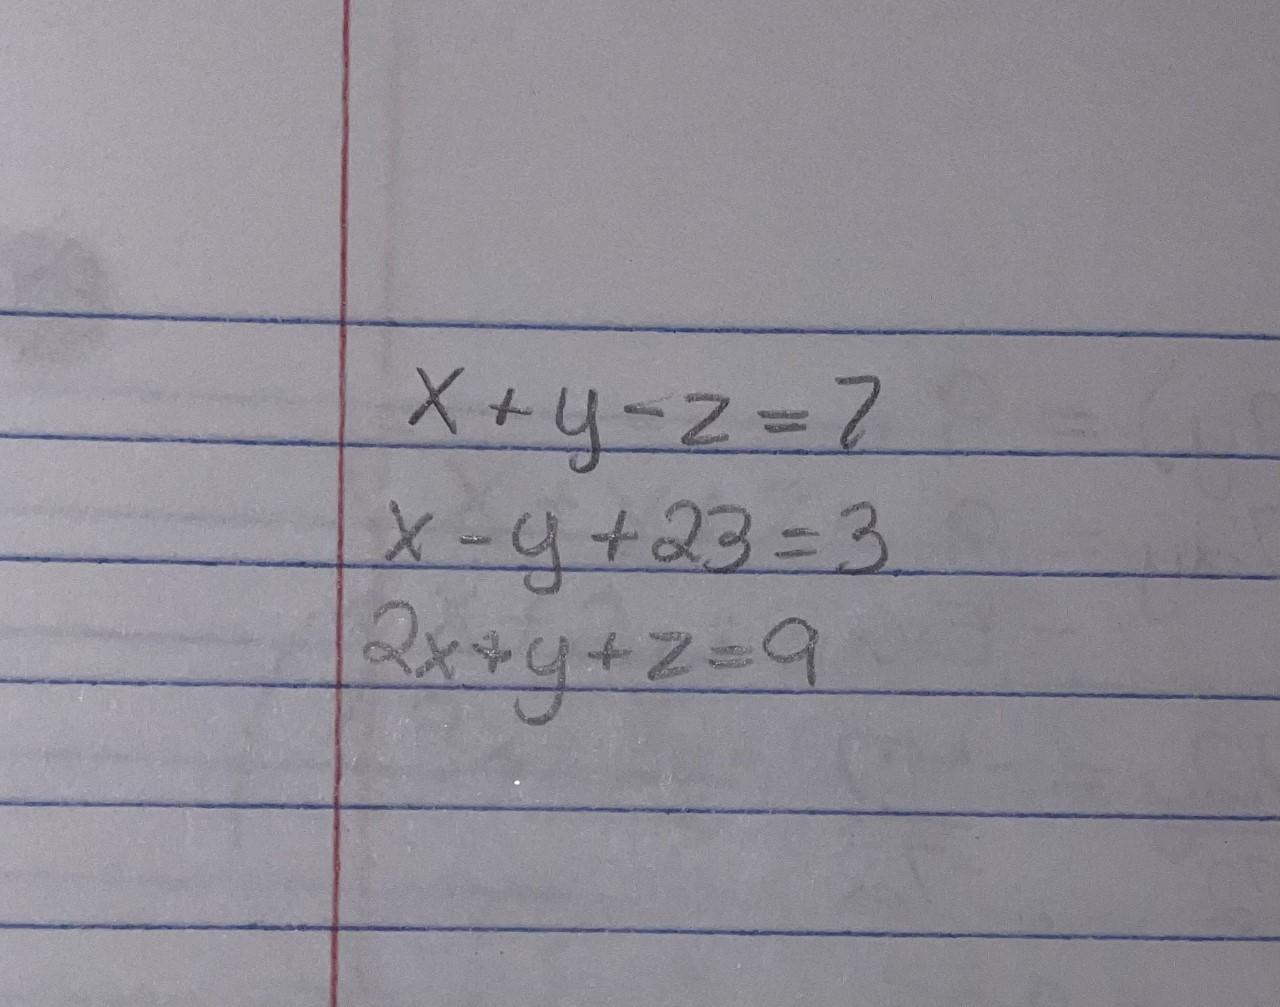 x + y - z = 7
x - y + 23 = 3
2x + y + z = 9